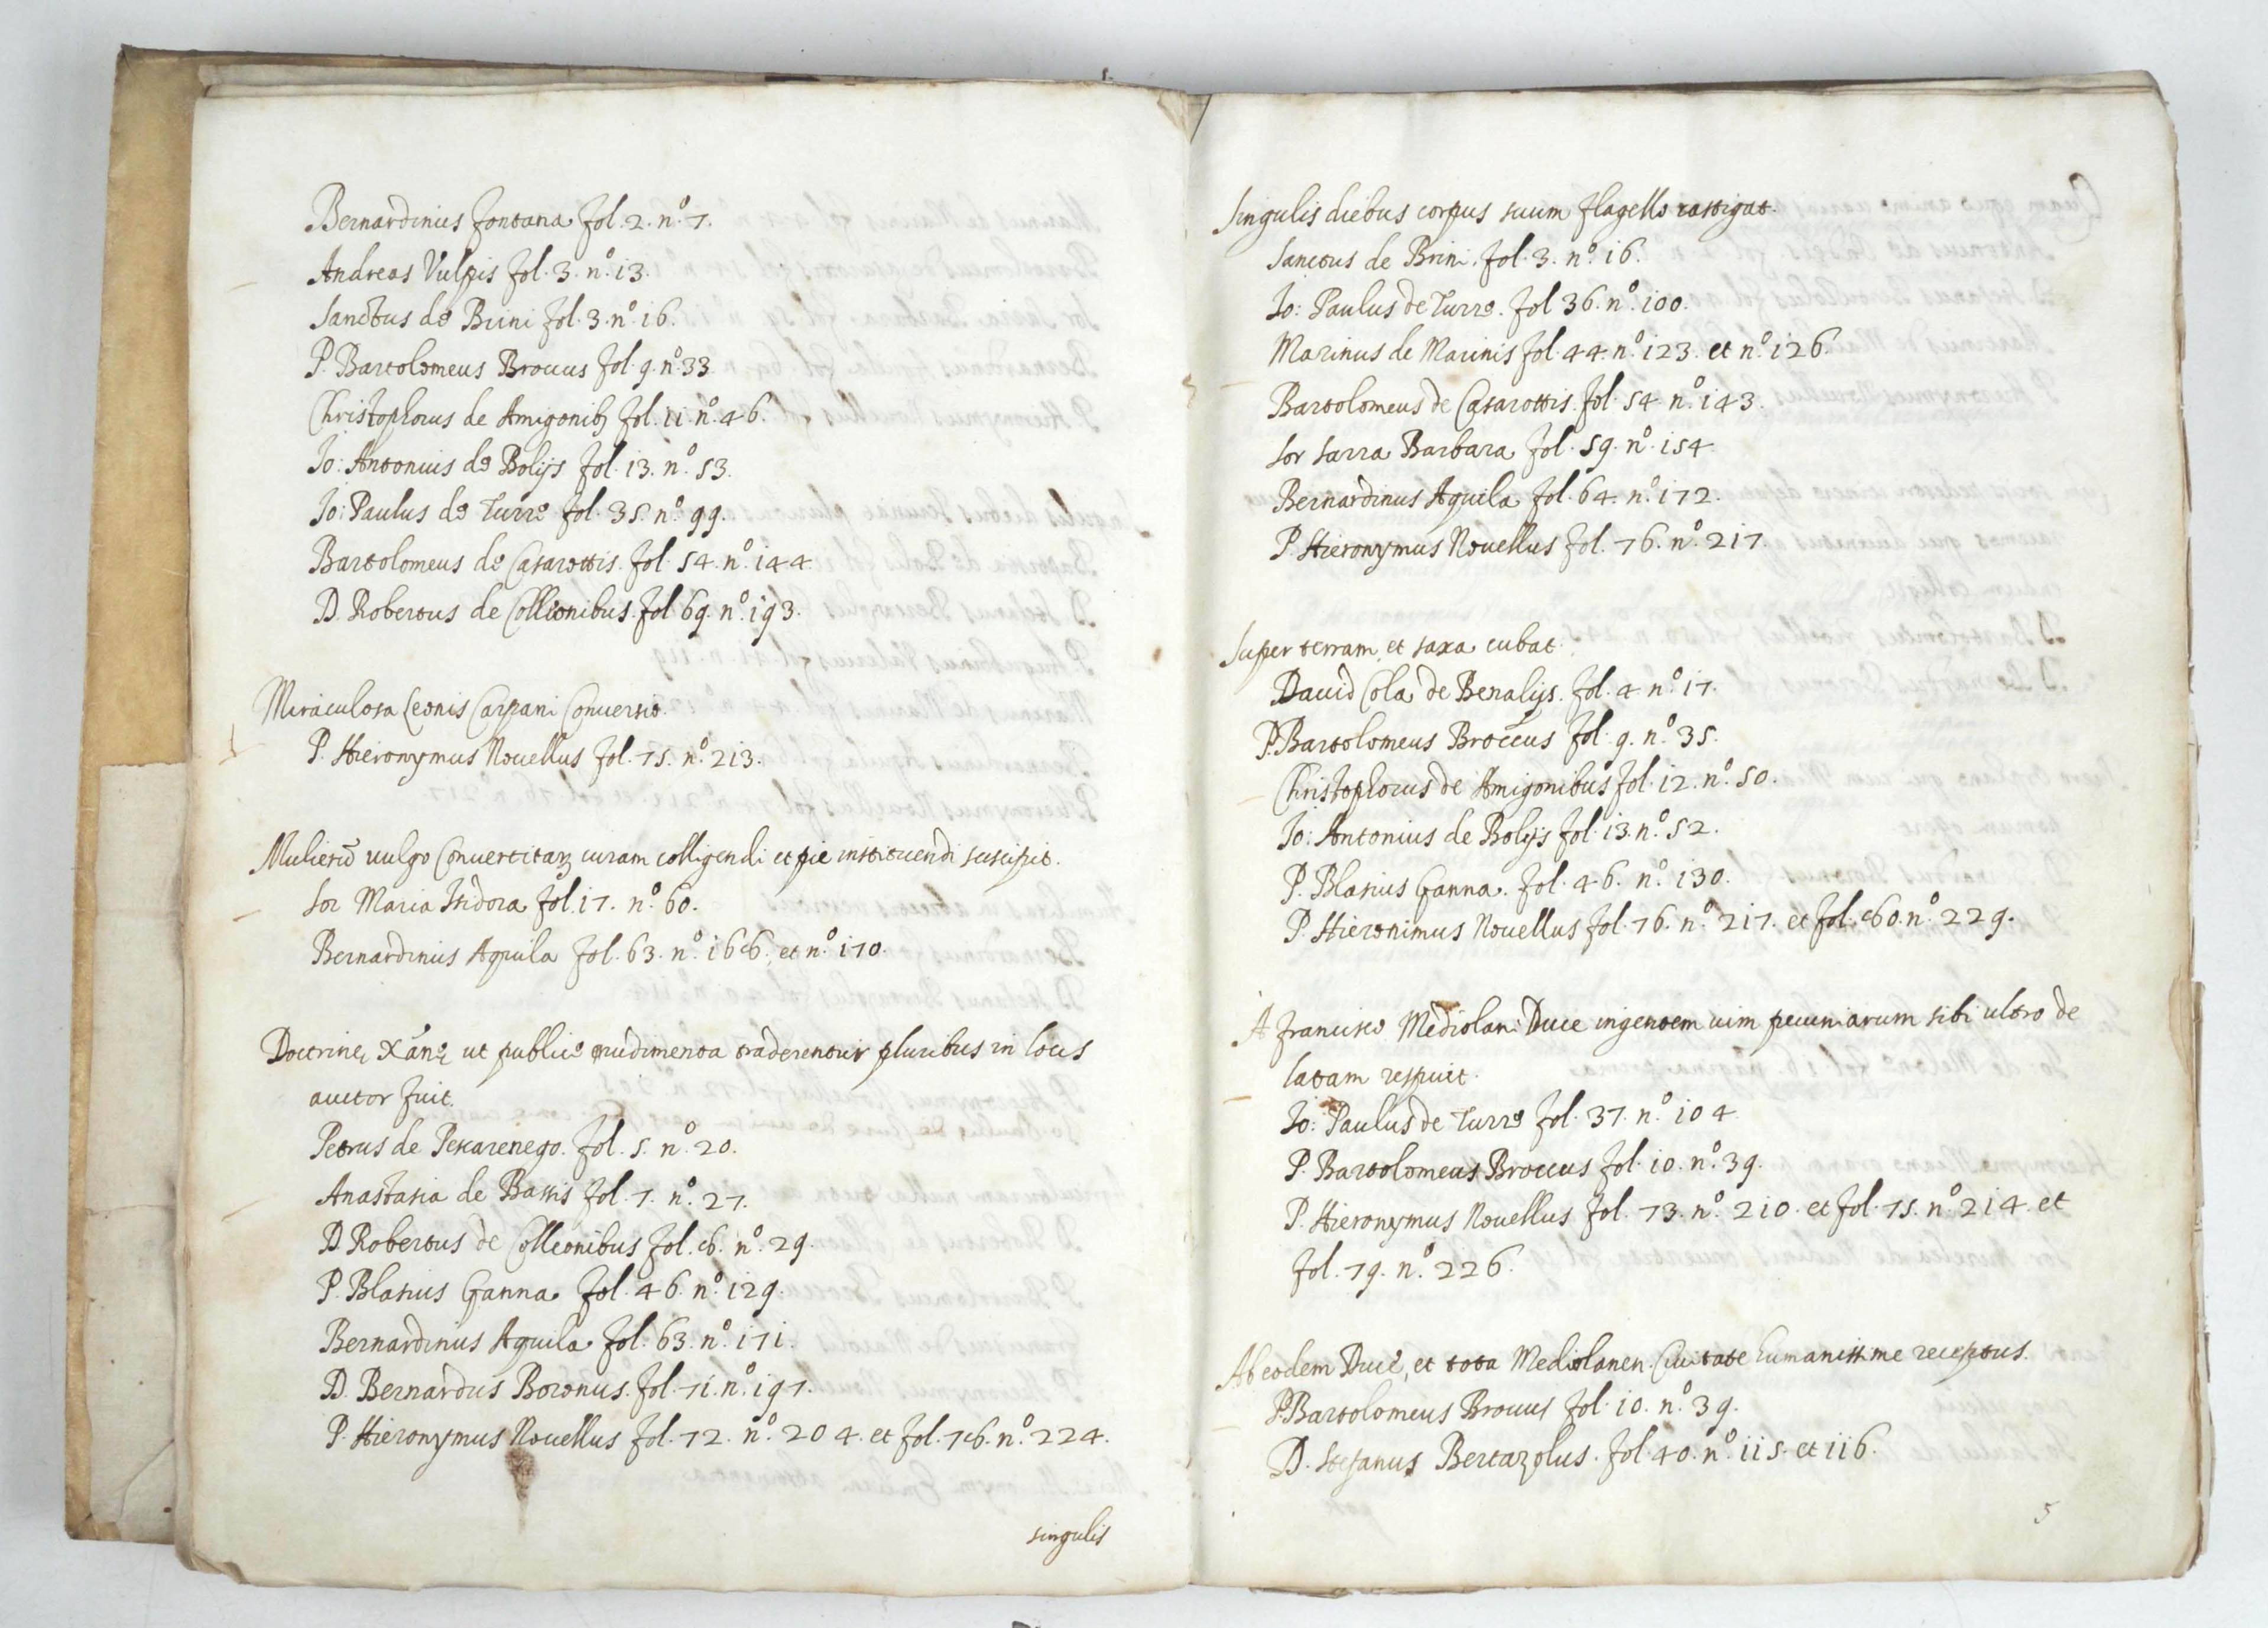 Bernardinus fontana fol. 2. nº. 7.
Andreas Vulpis fol. 3. nº. 13.
Sanctus de Brini fol. 3. nº. 16.
P. Bartolomeus Broccus fol. 9. nº. 33
Christophorus de Amigonibȝ fol. 11. nº. 46.
Io: Antonius de Bolijs fol. 13. nº. 53.
Io: Paulus de Turre fol. 35. nº. 99.
Bartolomeus de Casarottis. fol. 54. nº. 144.
D. Robertus de Collionibus. fol. 69. nº. 193.
Miraculosa Leonis Carpani Conuersio.
P. Hieronymus Nouellus fol. 75. nº. 213.
Mulierū uulgo Conuertitaꝝ curam colligendi et pie instituendi suscipit.
Sor Maria Isidora fol. 17. nº. 60.
Bernardinus Aquila fol. 63. nº. 168. et nº. 170.
Doctrinę Xānę ut publice rudimenta traderentur pluribus in locis
auctor fuit.
Petrus de Pescarenego. fol. 5. nº. 20.
Anastasia de Bassis fol. 7. nº. 27.
D. Robertus de Colleonibus fol. 8. nº. 29.
P. Blasius Ganna fol. 46. nº. 129.
Bernardinus Aquila fol. 63. nº. 171.
D. Bernardus Boronus. fol. 71. nº. 197.
P. Hieronymus Nouellus fol. 72. nº. 204. et fol. 78. nº. 224.
singulis
Singulis diebus corpus suum flagello castigat.
Sanctus de Brini. fol. 3. nº. 16.
Io: Paulus de Turre. fol 36. nº. 100.
Marinus de Marinis fol. 44. nº. 123. et nº. 126.
Bartolomeus de Casarottis. fol. 54. nº. 143.
Sor Sarra Barbara fol. 59. nº. 154.
Bernardinus Aquila fol. 64. nº. 172.
P. Hieronymus Nouellus fol. 76. nº. 217.
Super terram, et saxa cubat.
Dauid Cola de Benalijs. fol. 4. nº. 17.
P. Bartolomeus Broccus fol. 9. nº. 35.
Christophorus de Amigonibus fol. 12. nº. 50.
Io: Antonius de Bolijs fol. 13. nº. 52.
P. Blasius Ganna. fol. 46. nº. 130.
P. Hieronimus Nouellus fol. 76. nº. 217. et fol. 80. nº. 229.
A francisco Mediolani Duce ingentem uim pecuniarum sibi ultro de
latam respuit.
Io: Paulus de Turre fol. 37. nº. 104
P. Bartolomeus Broccus fol. 10. nº. 39.
P. Hieronymus Nouellus fol. 73. nº. 210. et fol. 75. nº. 214. et
fol. 79. nº. 226.
Ab eodem Duce, et tota Mediolanen. Ciuitate humanissime receptus.
P. Bartolomeus Broccus fol. 10. nº. 39.
D. Stefanus Bertazolus. fol. 40. nº. 115. et 116.
5